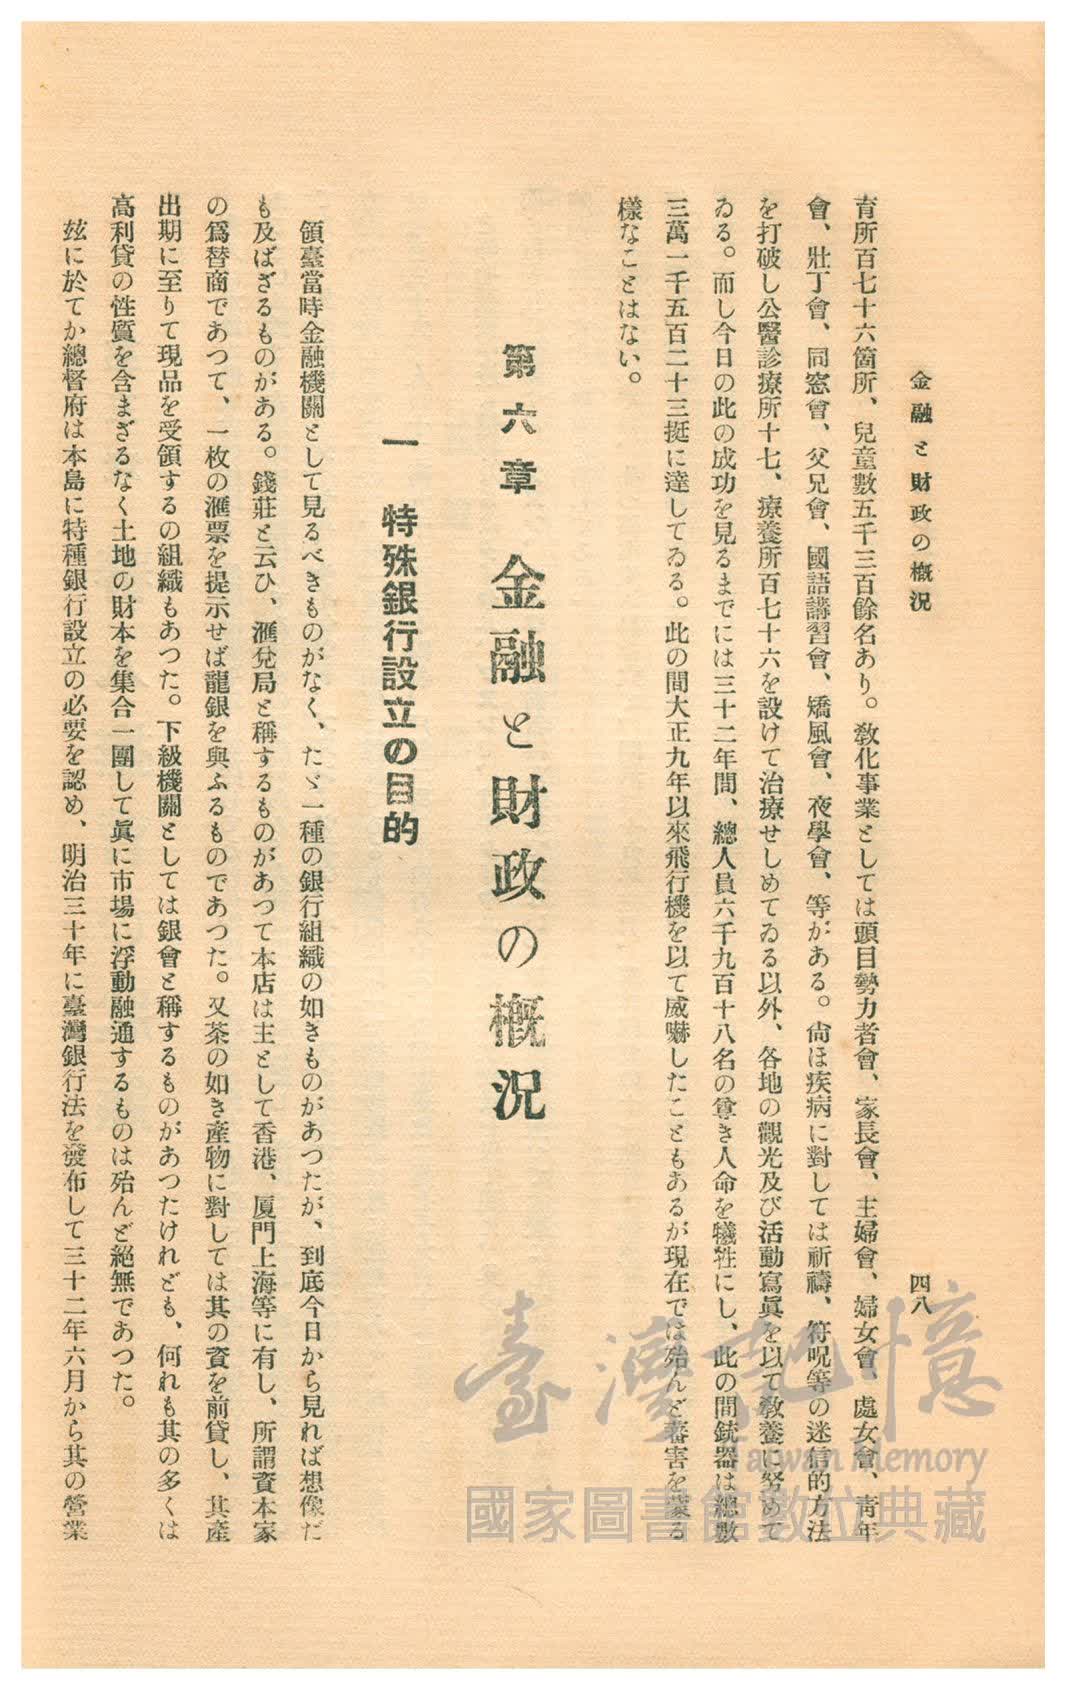 金融と財政の概況
四八
育所百七十六箇所、兒童數五千三百餘名あり。敎化事業としては頭目勢力者會、家長會、主婦會、婦女會、處女會、靑年
會、壯丁會、同窓會、父兄會、國語講習會、矯風會、夜學會、等がある。尙ほ疾病に對しては祈禱、符呪等の迷信的方法
を打破し公醫診療所十七、療養所百七十六を設けて治療せしめてゐる以外、各地の觀光及び活動寫眞を以て敎養に努めて
ゐる。而し今日の此の成功を見るまでには三十二年間、總人員六千九百十八名の尊き人命を犧牲にし、此の間銃器は總數
三萬一千五百二十三挺に達してゐる。此の間大正九年以來飛行機を以て威嚇したこともあるが現在では殆んど蕃害を蒙る
樣なことはない。
第六章 金融と財政の概況
一 特殊銀行設立の目的
領臺當時金融機關として見るべきものがなく、たゞ一種の銀行組織の如きものがあつたが、到底今日から見れば想像だ
も及ばざるものがある。錢莊と云ひ、滙兌局と稱するものがあつて本店は主として香港、厦門上海等に有し、所謂資本家
の爲替商であつて、一枚の滙票を提示せば龍銀を與ふるものであつた。又茶の如き產物に對しては其の資を前貸し、其產
出期に至りて現品を受領するの組織もあつた。下級機關としては銀會と稱するものがあつたけれども、何れも其の多くは
高利貸の性質を含まざるなく土地の財本を集合一團して眞に市場に浮動融通するものは殆んど絕無であつた。
玆に於てか總督府は本島に特種銀行設立の必要を認め、明治三十年に臺灣銀行法を發布して三十二年六月から其の營業
臺灣記憶
Taiwan Memory
國家圖書館數位典藏